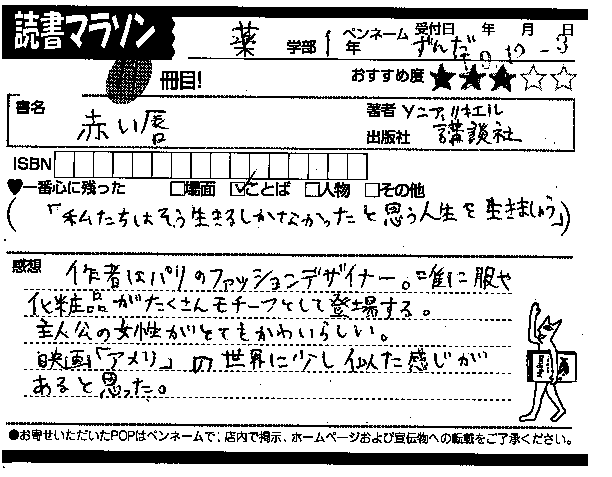 読書マラソン
薬 学部 1年 ペンネーム ずんだ 受付日 年 月 日
冊目! おすすめ度 ★★★☆☆
書名 赤い唇
著者 ソニア・リキエル
出版社 講談社
ISBN
♥一番心に残った □場面 ☑ことば □人物 □その他
(「私たちはそう生きるしかなかったと思う人生を生きましょう」)
感想 作者はパリのファッションデザイナー。 服や
化粧品がたくさんモチーフとして登場する。
主人公の女性がとてもかわいらしい。
映画「アメリ」の世界に少し似た感じが
あると思った。
●お寄せいただいたPOPはペンネームで、店内で掲示、ホームページおよび宣伝物への転載をご了承ください。